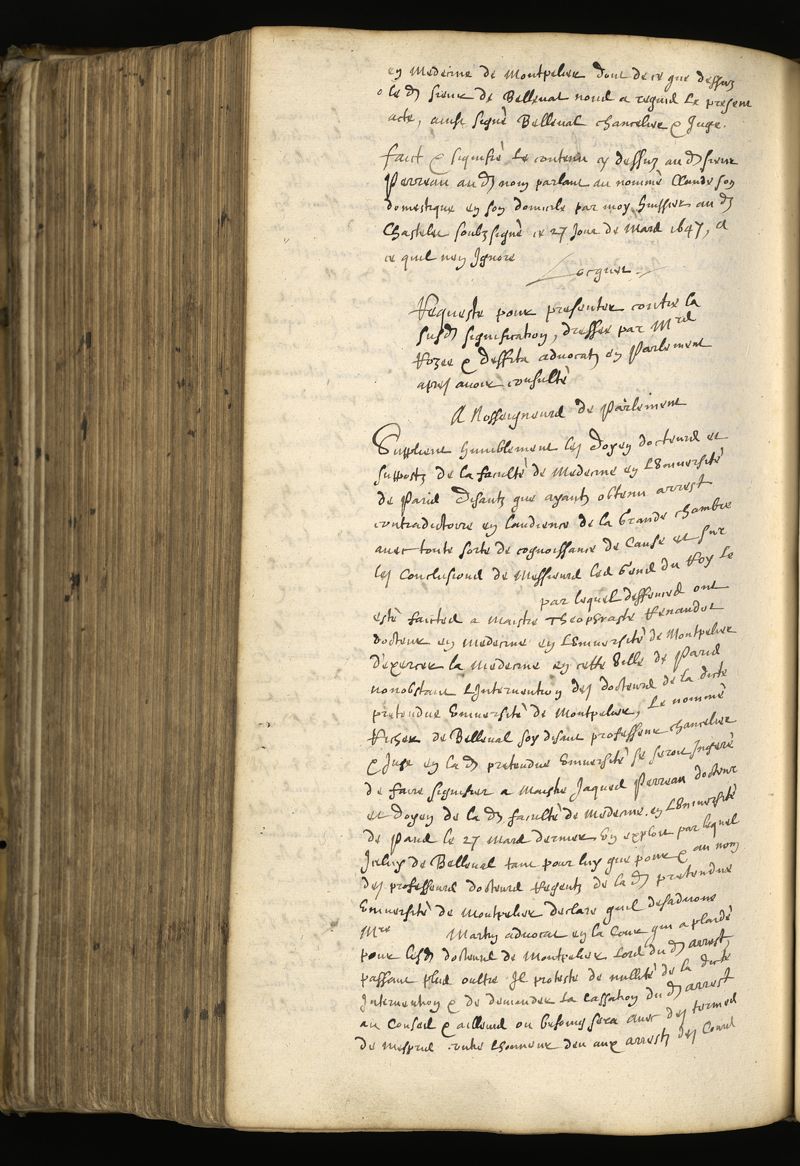 en Medecine de Montpelier dont de ce que dessus
le dt sieur de Belleval nous a requis le present
acte, ainsi signé Belleval chancelier & Juge.
faict & signifié le contenu cy dessus au dt sieur
Perreau au dt nom parlant au nommé Claude son
domestique en son domicile par moy huissier au dt
Chastelet soubzsigné ce 27 Jour de Mars 1647, a
ce quil nen Ignore
Locquet
Requeste pour presenter contre la
susdt signification, dressee par Mres
Rozee & deffita advocatz en Parlement
apres avoir consulté
A Nosseigneurs de Parlement
Supplient humblement les Doyen docteurs et
suppostz de la faculté de Medecine en L'Université
de Paris Disantz que ayantz obtenu arrest
contradictoire en laudience de la Grande chambre
avec toute sorte de cognoissance de Cause et sur
les Conclusions de Messieurs les Gens du Roy le
par lequel deffences ont
esté faictes a Maistre Theophraste Renaudot
docteur en Medecine en L'Université de Montpelier
d'exercer la Medecine en cette Ville de Paris
nonobstant L'Intervention des docteurs de la dicte
pretendue Université de Montpelier, Le nommé
Richer de Belleval soy disant professeur chancelier
& Juge en la dt pretendue Université se seroit Ingeré
de faire signifier a Maistre Jaques Perreau docteur
et Doyen de la dt faculté de Medecine en L'Université
de Paris le 27 Mars dernier Un exploit par lequel
Iceluy de Belleval tant pour luy que pour & au nom
des professeurs docteurs Regentz de la dt pretendue
Université de Montpelier declare quil desadvoue
Mre Martin advocat en la Cour qui a plaidé
pour lesdt docteurs de Montpelier lors du dt arrest
passant plus oultre Il proteste de nullité de la dicte
Intervention & de demander la Cassation du dt arrest
au Conseil & ailleurs ou besoing sera avec des termes
de mespris contre lhonneur deu aux arrestz des Cours